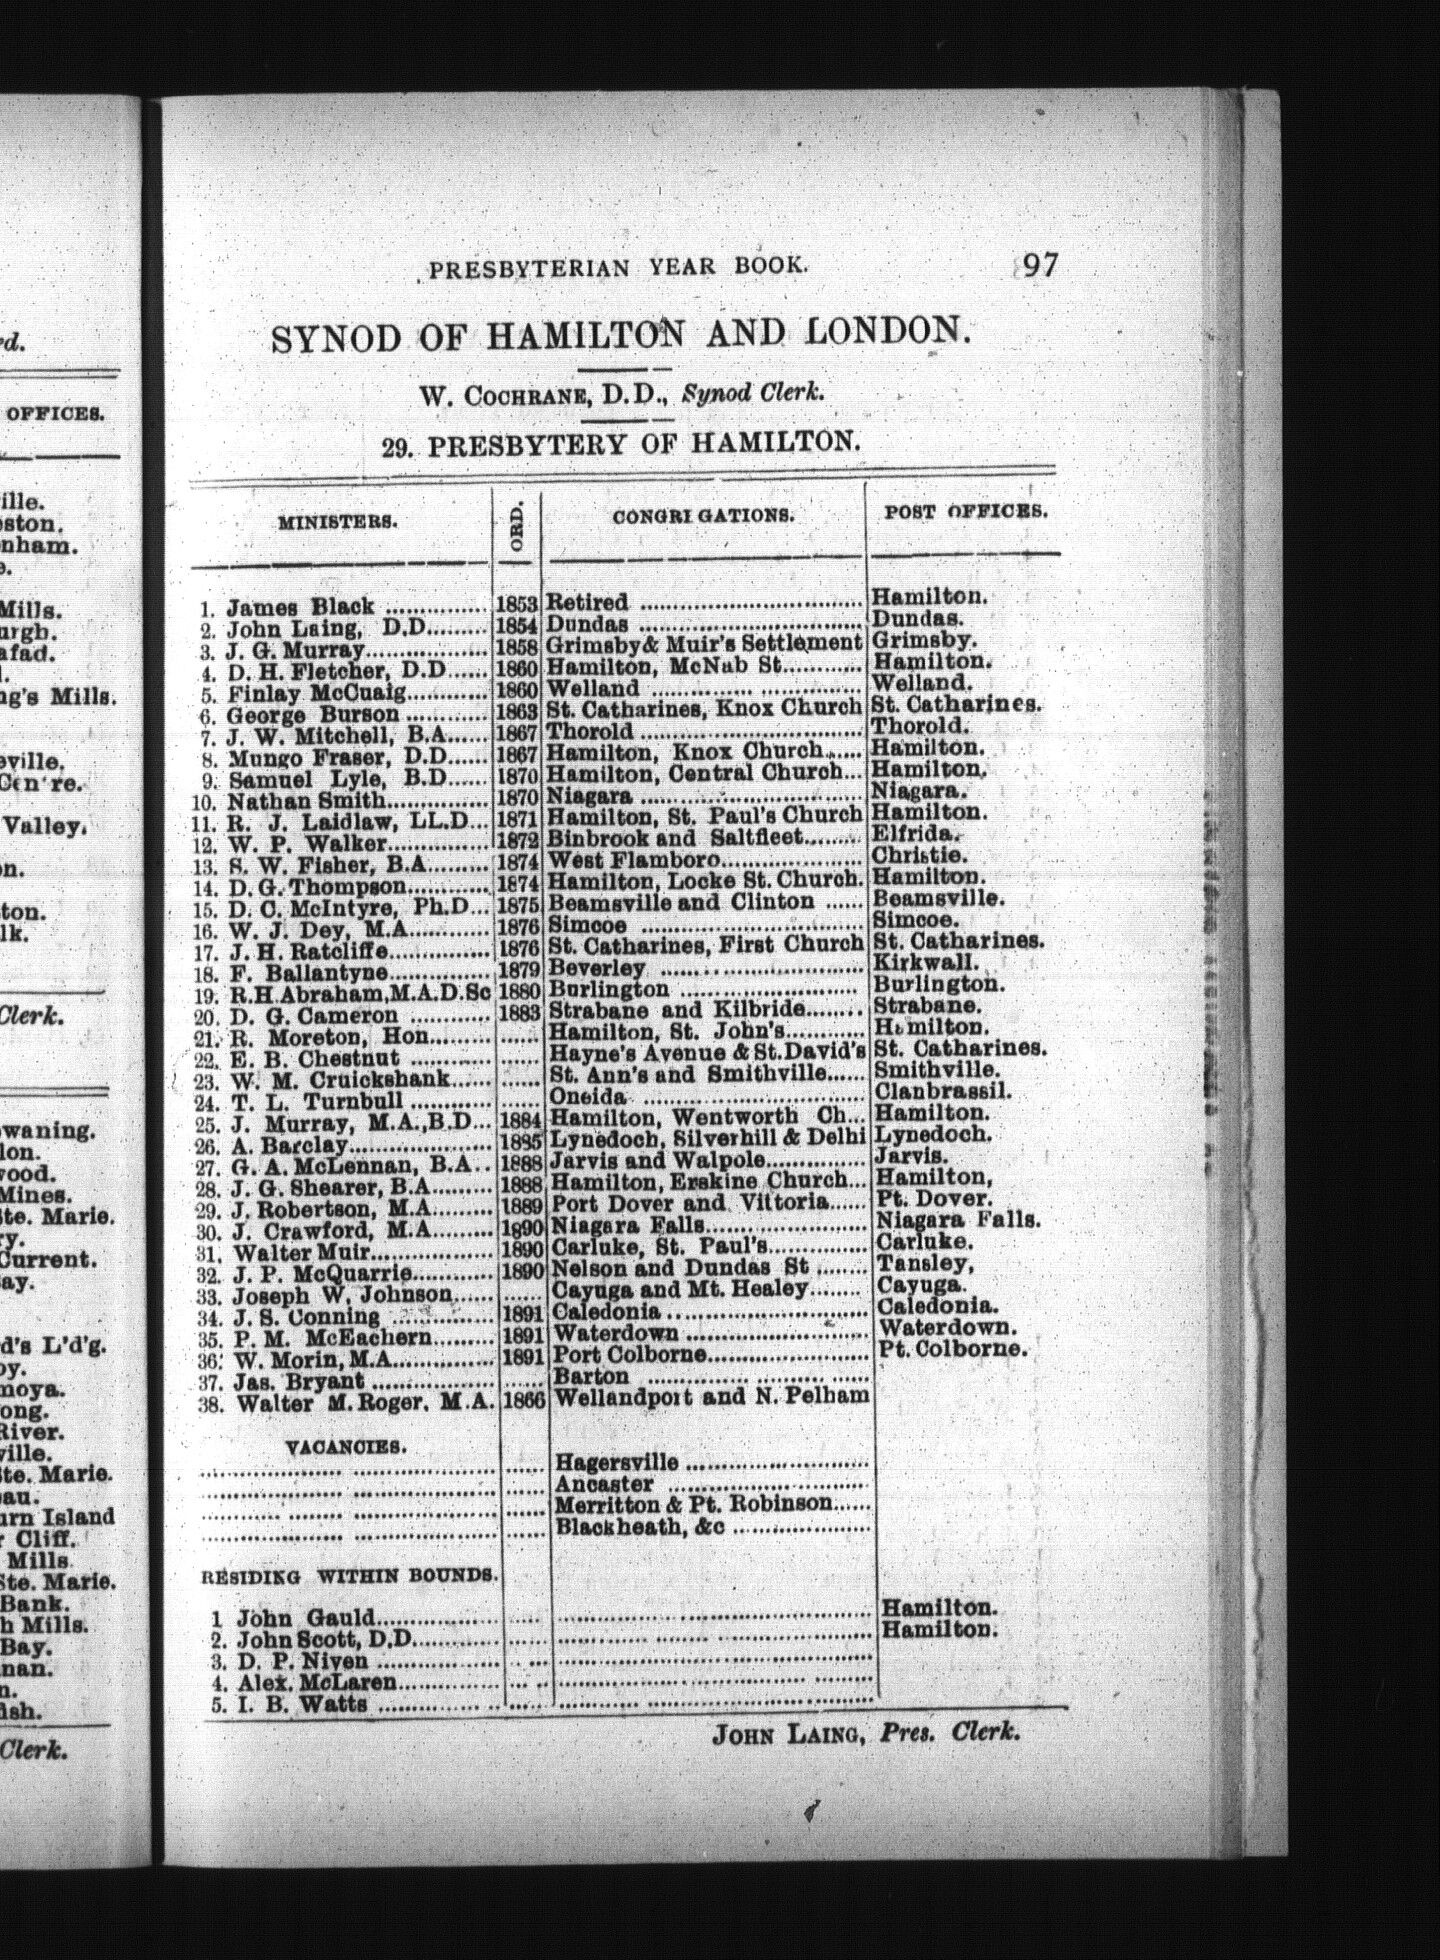 rd.
OFFICES.
ille.
ston.
nham.
e.
Mills.
urgh.
afad.
l.
ng's Mills.
eville.
Centre.
Valley.
on.
ton.
lk.
Clerk.
waning.
lon.
wood.
Mines.
Ste. Marie.
ry.
Current.
ay.
d's L'd'g.
oy.
moya.
ong.
River.
ville.
Ste. Marie.
au.
urn Island
r Cliff.
Mills.
Ste. Marie.
Bank.
h Mills.
Bay.
nan.
n.
ish.
Clerk.
PRESBYTERIAN YEAR BOOK. 97
SYNOD OF HAMILTON AND LONDON.
W. COCHRANE, D.D., Synod Clerk.
29. PRESBYTERY OF HAMILTON.
MINISTERS. ORD. CONGRIGATIONS. POST OFFICES.
1. James Black .............. 1853 Retired .............................. Hamilton.
2. John Laing, D.D......... 1854 Dundas .............................. Dundas.
3. J. G. Murray.................. 1858 Grimsby & Muir's Settlement Grimsby.
4. D. H. Fletcher, D.D...... 1860 Hamilton, McNab St............ Hamilton.
5. Finlay McCuaig............ 1860 Welland .............................. Welland.
6. George Burson ............ 1863 St. Catharines, Knox Church St. Catharines.
7. J. W. Mitchell, B.A...... 1867 Thorold .............................. Thorold.
8. Mungo Fraser, D.D...... 1867 Hamilton, Knox Church...... Hamilton.
9. Samuel Lyle, B.D...... 1870 Hamilton, Central Church... Hamilton.
10. Nathan Smith............... 1870 Niagara .............................. Niagara.
11. R. J. Laidlaw, LL.D... 1871 Hamilton, St. Paul's Church Hamilton.
12. W. P. Walker............... 1872 Binbrook and Saltfleet......... Elfrida.
13. S. W. Fisher, B.A......... 1874 West Flamboro..................... Christie.
14. D. G. Thompson............ 1874 Hamilton, Locke St. Church. Hamilton.
15. D. C. McIntyre, Ph.D... 1875 Beamsville and Clinton ...... Beamsville.
16. W. J. Dey, M.A............ 1876 Simcoe .............................. Simcoe.
17. J. H. Ratcliffe............... 1876 St. Catharines, First Church St. Catharines.
18. F. Ballantyne............... 1879 Beverley .............................. Kirkwall.
19. R.H.Abraham,M.A.D.Sc 1880 Burlington ........................ Burlington.
20. D. G. Cameron ............ 1883 Strabane and Kilbride......... Strabane.
21. R. Moreton, Hon......... ...... Hamilton, St. John's............ Hamilton.
22. E. B. Chestnut ............ ...... Hayne's Avenue & St. David's St. Catharines.
23. W. M. Cruickshank...... ...... St. Ann's and Smithville...... Smithville.
24. T. L. Turnbull ............ ...... Oneida .............................. Clanbrassil.
25. J. Murray, M.A.,B.D... 1884 Hamilton, Wentworth Ch... Hamilton.
26. A. Barclay..................... 1885 Lynedoch, Silverhill & Delhi Lynedoch.
27. G. A. McLennan, B.A.. 1888 Jarvis and Walpole............... Jarvis.
28. J. G. Shearer, B.A......... 1888 Hamilton, Erskine Church... Hamilton,
29. J. Robertson, M.A......... 1889 Port Dover and Vittoria...... Pt. Dover.
30. J. Crawford, M.A......... 1890 Niagara Falls..................... Niagara Falls.
31. Walter Muir.................. 1890 Carluke, St. Paul's............... Carluke.
32. J. P. McQuarrie............ 1890 Nelson and Dundas St ........ Tansley,
33. Joseph W. Johnson...... ...... Cayuga and Mt. Healey........ Cayuga.
34. J. S. Conning ............... 1891 Caledonia .............................. Caledonia.
35. P. M. McEachern......... 1891 Waterdown ........................ Waterdown.
36. W. Morin, M.A............... 1891 Port Colborne..................... Pt. Colborne.
37. Jas. Bryant .................. ...... Barton ..............................
38. Walter M. Roger, M.A. 1866 Wellandport and N. Pelham
VACANCIES.
Hagersville ...........................
Ancaster ...........................
Merritton & Pt. Robinson......
Blackheath, &c .....................
RESIDING WITHIN BOUNDS.
1 John Gauld.................. Hamilton.
2. John Scott, D.D............ Hamilton.
3. D. P. Niven ..................
4. Alex. McLaren...............
5. I. B. Watts ..................
JOHN LAING, Pres. Clerk.